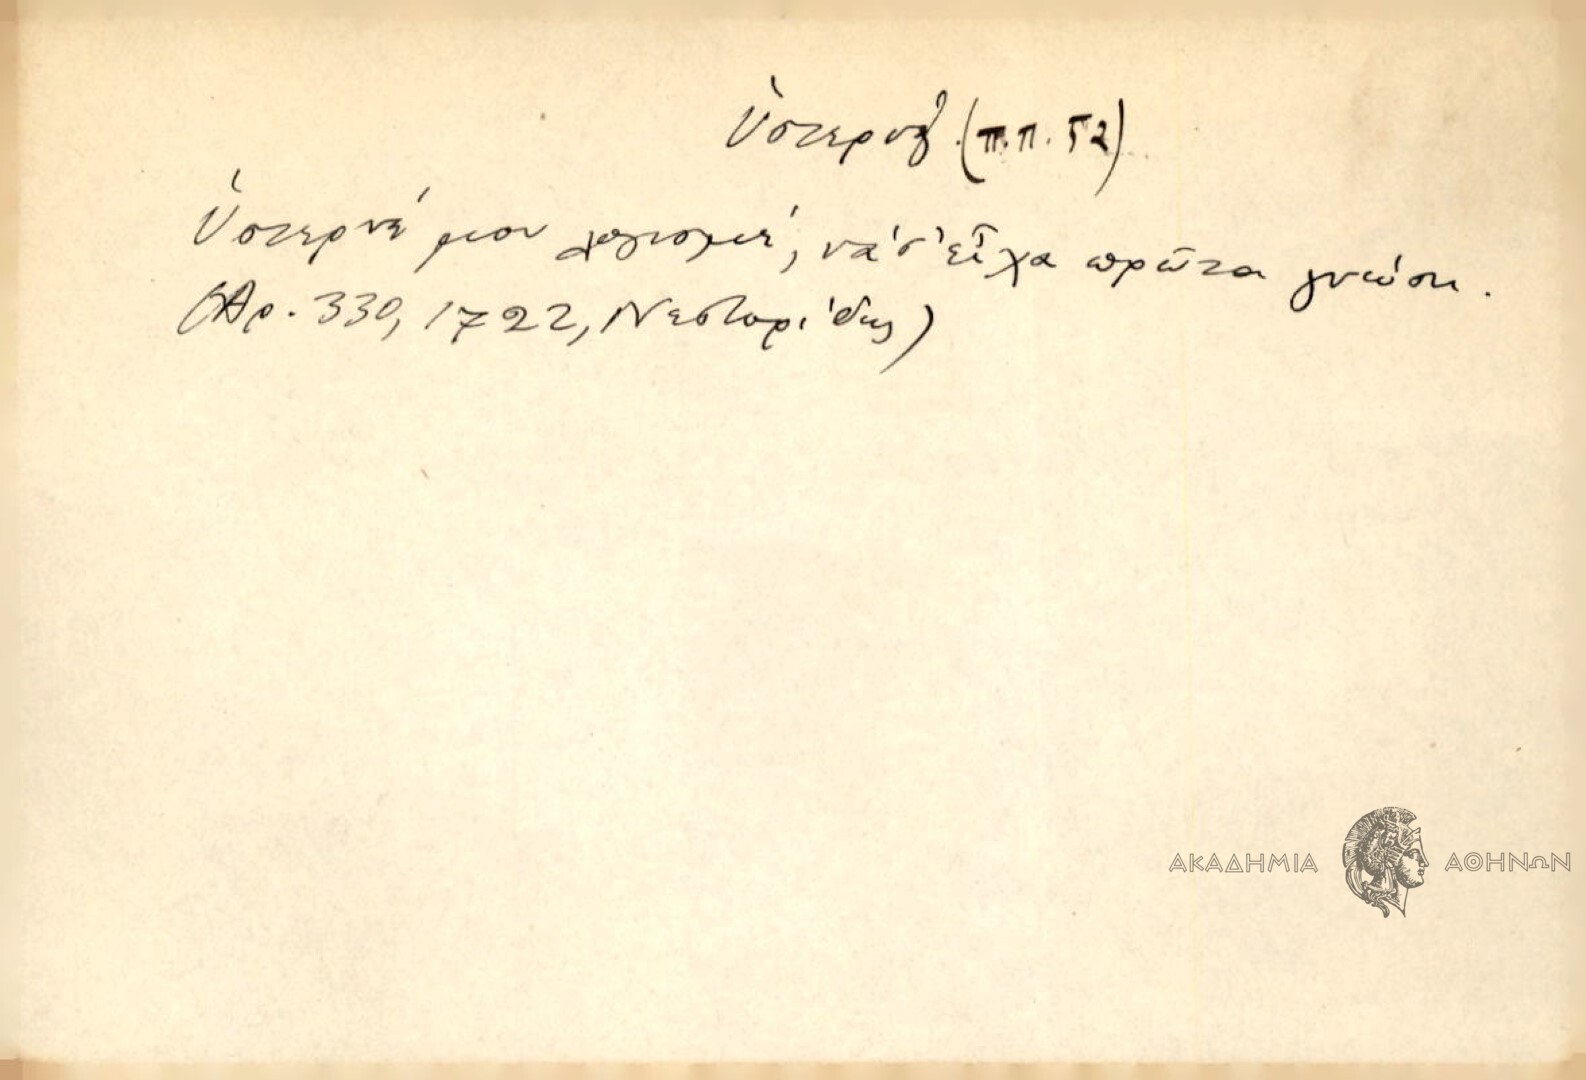 Ὑστερνὸς (π.π. Γ2)
Ὑστερνέ μου λογισμέ, νά σ' εἶχα πρῶτα γνώση.
(Ἀρ. 330, 1722, Νεστορίδης)
ΑΚΑΔΗΜΙΑ ΑΘΗΝΩΝ